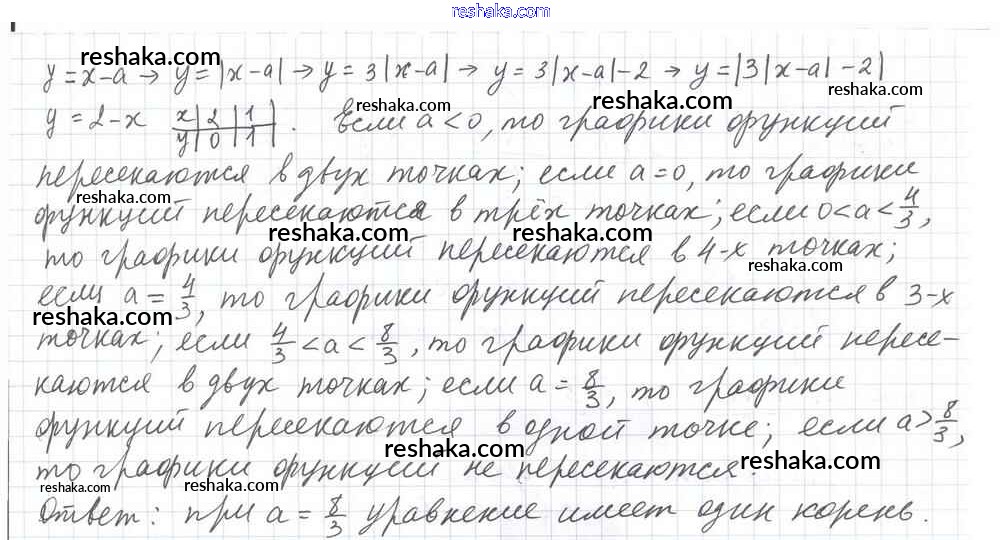 reshaka.com
reshaka.com
y = x-a → y = |x-a| → y = 3|x-a| → y = 3|x-a| - 2 → y = |3|x-a| - 2|
reshaka.com
reshaka.com
y = 2-x x | 2 | 1 | . Если a < 0, то графики функций
y | 0 | 1 |
reshaka.com
пересекаются в двух точках; если a = 0, то графики
reshaka.com
функций пересекаются в трёх точках; если 0 < a < 4/3,
reshaka.com
reshaka.com
то графики функций пересекаются в 4-х точках;
reshaka.com
если a = 4/3, то графики функций пересекаются в 3-х
reshaka.com
точках; если 4/3 < a < 8/3, то графики функций пересе-
каются в двух точках; если a = 8/3, то графики
функций пересекаются в одной точке; если a > 8/3,
reshaka.com
reshaka.com
то графики функций не пересекаются.
reshaka.com
reshaka.com
Ответ: при a = 8/3 уравнение имеет один корень.